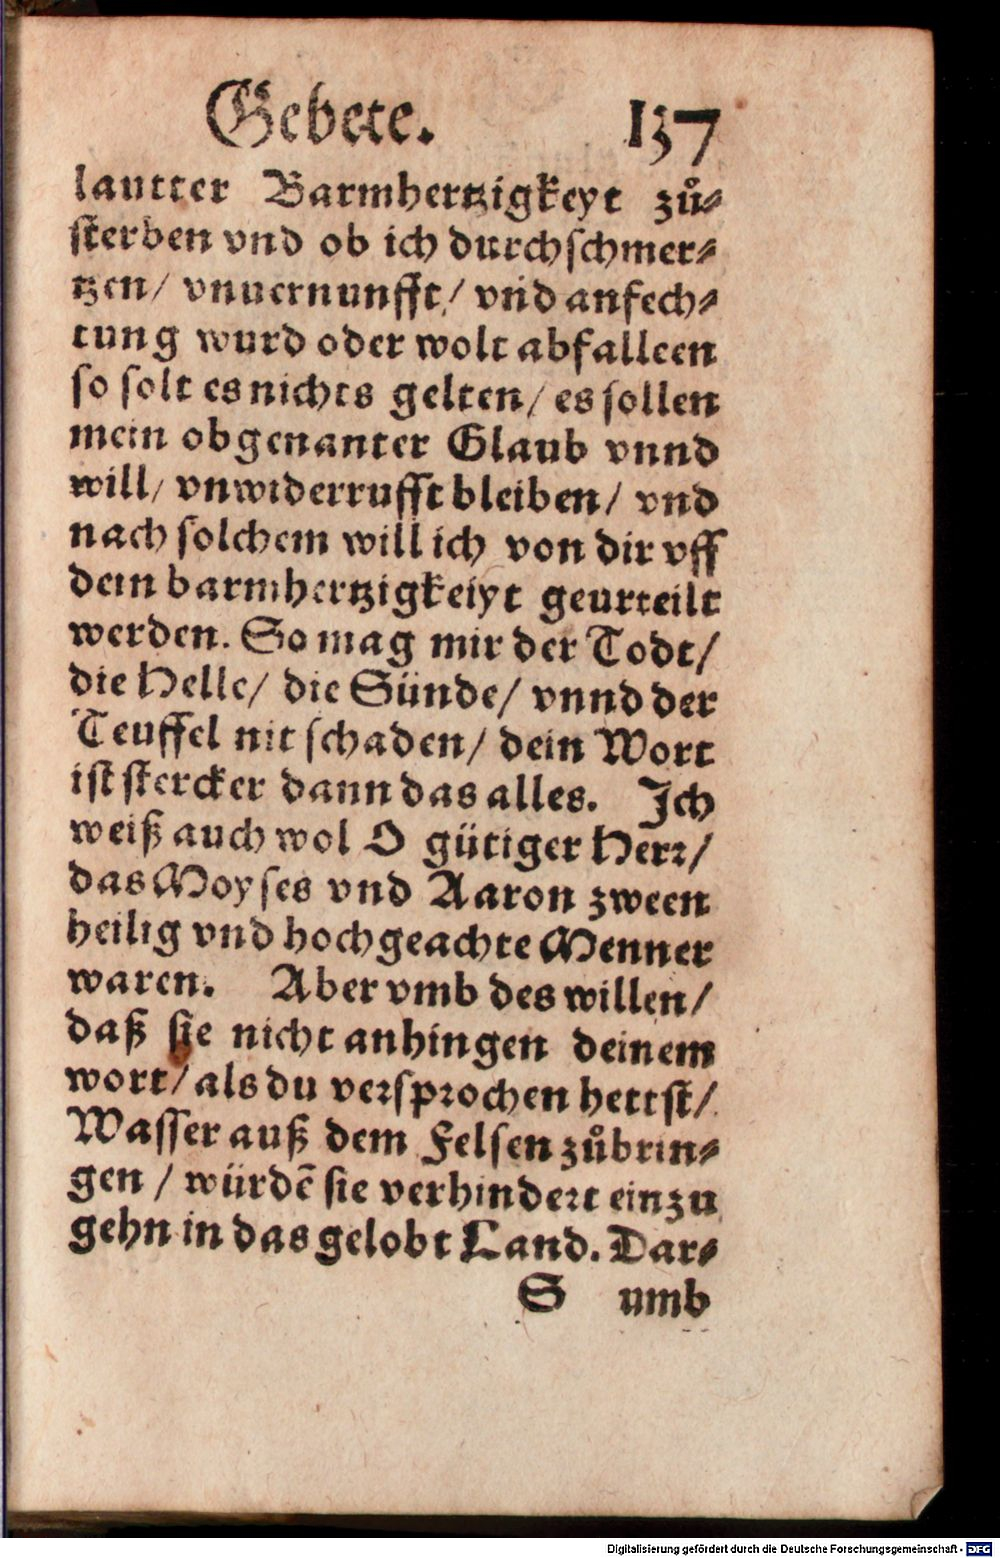 Gebete. 137
lautter Barmhertzigkeyt zů⸗
sterben vnd ob ich durch schmer⸗
tzen/ vnuernunfft/ vñd anfech⸗
tung wurd oder wolt abfalleen
so solt es nichts gelten/ es sollen
mein obgenanter Glaub vnnd
will/ vnwiderrufft bleiben/ vnd
nach solchem will ich von dir vff
dein barmhertzigkeiyt geurteilt
werden. So mag mir der Todt/
die Helle/ die Sünde/ vnnd der
Teuffel nit schaden/ dein Wort
ist stercker dann das alles. Ich
weiß auch wol O gütiger Herr/
das Moyses vnd Aaron zween
heilig vnd hochgeachte Menner
waren. Aber vmb des willen/
daß sie nicht anhingen deinem
wort/ als du versprochen hettst/
Wasser auß dem Felsen zůbrin⸗
gen/ würdē sie verhindert einzu
gehn in das gelobt Land. Dar⸗
S umb
Digitalisierung gefördert durch die Deutsche Forschungsgemeinschaft - DFG